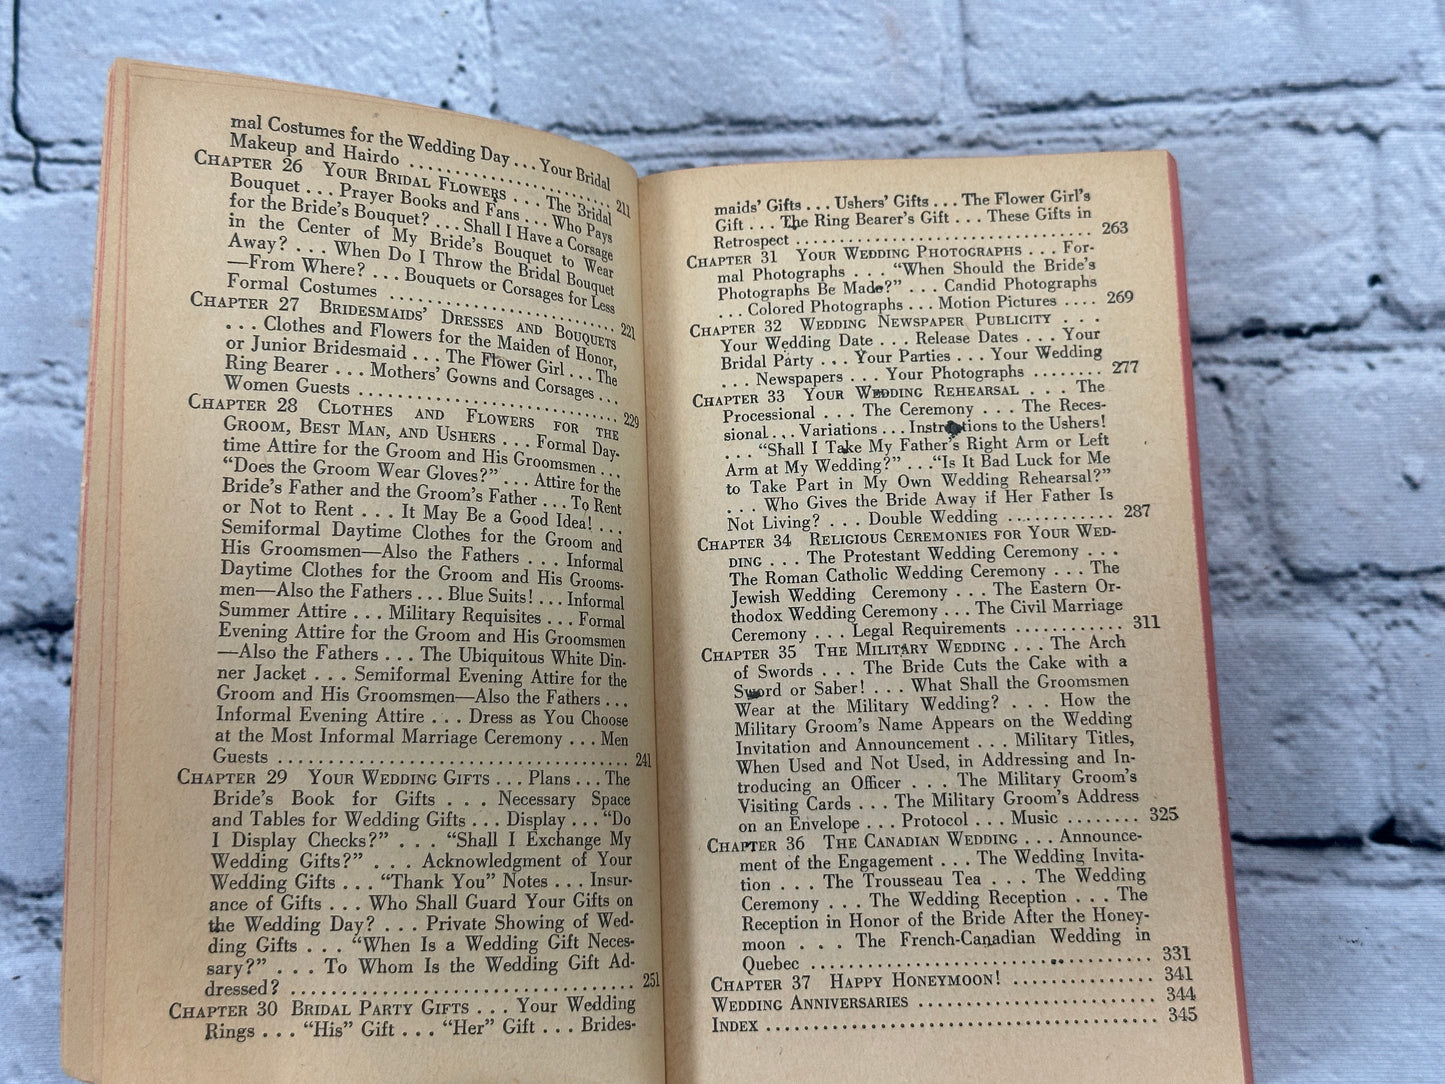 mal Costumes for the Wedding Day . . . Your Bridal
Makeup and Hairdo . . . . . . . . . . . . . . . . . . . . . . . . 211
CHAPTER 26 YOUR BRIDAL FLOWERS . . . The Bridal
Bouquet . . . Prayer Books and Fans . . . Who Pays
for the Bride's Bouquet? . . . Shall I Have a Corsage
in the Center of My Bride's Bouquet to Wear
Away? . . . When Do I Throw the Bridal Bouquet
—From Where? . . . Bouquets or Corsages for Less
Formal Costumes . . . . . . . . . . . . . . . . . . . . . . . . . . 221
CHAPTER 27 BRIDESMAIDS' DRESSES AND BOUQUETS
. . . Clothes and Flowers for the Maiden of Honor,
or Junior Bridesmaid . . . The Flower Girl . . . The
Ring Bearer . . . Mothers' Gowns and Corsages . . .
Women Guests . . . . . . . . . . . . . . . . . . . . . . . . . . . . 229
CHAPTER 28 CLOTHES AND FLOWERS FOR THE
GROOM, BEST MAN, AND USHERS . . . Formal Day-
time Attire for the Groom and His Groomsmen . . .
"Does the Groom Wear Gloves?" . . . Attire for the
Bride's Father and the Groom's Father . . . To Rent
or Not to Rent . . . It May Be a Good Idea! . . .
Semiformal Daytime Clothes for the Groom and
His Groomsmen—Also the Fathers . . . Informal
Daytime Clothes for the Groom and His Grooms-
men—Also the Fathers . . . Blue Suits! . . . Informal
Summer Attire . . . Military Requisites . . . Formal
Evening Attire for the Groom and His Groomsmen
—Also the Fathers . . . The Ubiquitous White Din-
ner Jacket . . . Semiformal Evening Attire for the
Groom and His Groomsmen—Also the Fathers . . .
Informal Evening Attire . . . Dress as You Choose
at the Most Informal Marriage Ceremony . . . Men
Guests . . . . . . . . . . . . . . . . . . . . . . . . . . . . . . . . . . . . 241
CHAPTER 29 YOUR WEDDING GIFTS . . . Plans . . . The
Bride's Book for Gifts . . . Necessary Space
and Tables for Wedding Gifts . . . Display . . . "Do
I Display Checks?" . . . "Shall I Exchange My
Wedding Gifts?" . . . Acknowledgment of Your
Wedding Gifts . . . "Thank You" Notes . . . Insur-
ance of Gifts . . . Who Shall Guard Your Gifts on
the Wedding Day? . . . Private Showing of Wed-
ding Gifts . . . "When Is a Wedding Gift Neces-
sary?" . . . To Whom Is the Wedding Gift Ad-
dressed? . . . . . . . . . . . . . . . . . . . . . . . . . . . . . . . . . . 251
CHAPTER 30 BRIDAL PARTY GIFTS . . . Your Wedding
Rings . . . "His" Gift . . . "Her" Gift . . . Brides-
maids' Gifts . . . Ushers' Gifts . . . The Flower Girl's
Gift . . . The Ring Bearer's Gift . . . These Gifts in
Retrospect . . . . . . . . . . . . . . . . . . . . . . . . . . . . . . . . 263
CHAPTER 31 YOUR WEDDING PHOTOGRAPHS . . . For-
mal Photographs . . . "When Should the Bride's
Photographs Be Made?" . . . Candid Photographs
. . . Colored Photographs . . . Motion Pictures . . . . 269
CHAPTER 32 WEDDING NEWSPAPER PUBLICITY . . .
Your Wedding Date . . . Release Dates . . . Your
Bridal Party . . . Your Parties . . . Your Wedding
. . . Newspapers . . . Your Photographs . . . . . . . . 277
CHAPTER 33 YOUR WEDDING REHEARSAL . . . The
Processional . . . The Ceremony . . . The Reces-
sional . . . Variations . . . Instructions to the Ushers!
. . . "Shall I Take My Father's Right Arm or Left
Arm at My Wedding?" . . . "Is It Bad Luck for Me
to Take Part in My Own Wedding Rehearsal?"
. . . Who Gives the Bride Away if Her Father Is
Not Living? . . . Double Wedding . . . . . . . . . . . . 287
CHAPTER 34 RELIGIOUS CEREMONIES FOR YOUR WED-
DING . . . The Protestant Wedding Ceremony . . .
The Roman Catholic Wedding Ceremony . . . The
Jewish Wedding Ceremony . . . The Eastern Or-
thodox Wedding Ceremony . . . The Civil Marriage
Ceremony . . . Legal Requirements . . . . . . . . . . . . 311
CHAPTER 35 THE MILITARY WEDDING . . . The Arch
of Swords . . . The Bride Cuts the Cake with a
Sword or Saber! . . . What Shall the Groomsmen
Wear at the Military Wedding? . . . How the
Military Groom's Name Appears on the Wedding
Invitation and Announcement . . . Military Titles,
When Used and Not Used, in Addressing and In-
troducing an Officer . . . The Military Groom's
Visiting Cards . . . The Military Groom's Address
on an Envelope . . . Protocol . . . Music . . . . . . . . 325
CHAPTER 36 THE CANADIAN WEDDING . . . Announce-
ment of the Engagement . . . The Wedding Invita-
tion . . . The Trousseau Tea . . . The Wedding
Ceremony . . . The Wedding Reception . . . The
Reception in Honor of the Bride After the Honey-
moon . . . The French-Canadian Wedding in
Quebec . . . . . . . . . . . . . . . . . . . . . . . . . . . . . . . . . . 331
CHAPTER 37 HAPPY HONEYMOON! . . . . . . . . . . . . . . . 341
WEDDING ANNIVERSARIES . . . . . . . . . . . . . . . . . . . . . . . . 344
INDEX . . . . . . . . . . . . . . . . . . . . . . . . . . . . . . . . . . . . . . . . 345